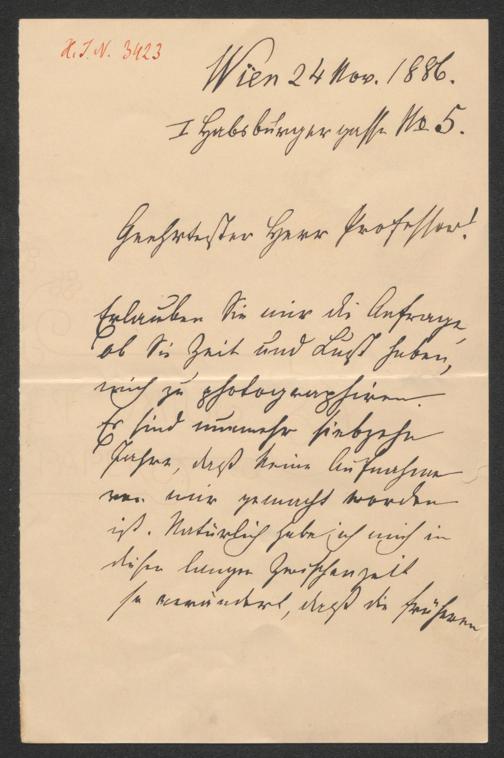 H.I.N. 3423
Wien 24 Nov. 1886.
I Habsburgergasse No 5.
Geehrtester Herr Professor!
Erlauben Sie mir die Anfrage
ob Sie Zeit und Lust haben,
mich zu photographiren.
Es sind nunmehr siebzehn
Jahre, daß keine Aufnahme
von mir gemacht worden
ist. Natürlich habe ich mich in
dieser langen Zwischenzeit
so verändert, daß die früheren